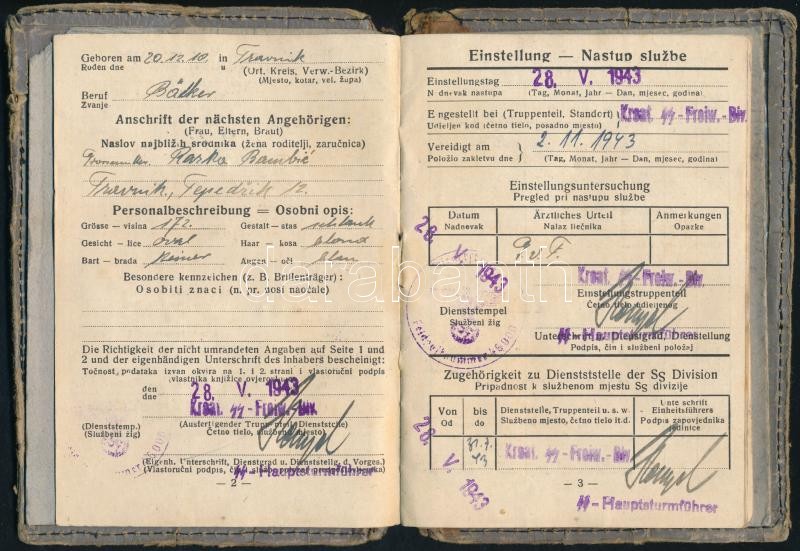 Geboren am 20.12.10. in Travnik
Rođen dne u (Ort, Kreis, Verw.-Bezirk)
(Mjesto, kotar, vel. župa)
Beruf Bäcker
Zvanje
Anschrift der nächsten Angehörigen:
(Frau, Eltern, Braut)
Naslov najbližih srodnika (žena roditelji, zaručnica)
Marko Bambić
Travnik, 12.
Personalbeschreibung = Osobni opis:
Grösse - visina 172. Gestalt - stas schlank
Gesicht - lice oval Haar - kosa blond
Bart - brada keiner Augen oči blau
Besondere kennzeichen (z. B. Brillenträger):
Osobiti znaci (n. pr. nosi naočale)
Die Richtigkeit der nicht umrandeten Angaben auf Seite 1 und
2 und der eigenhändigen Unterschrift des Inhabers bescheinigt:
Točnost, podataka izvan okvira na 1. i 2. strani i vlastoručni potpis
vlastnika knjižice ovjerovljuje
den
dne
28. V. 1943
Kroat. SS - Freiw. - Div.
(Dienststemp.)
(Službeni žig)
(Ausfertigender Truppenteil Dienststelle)
Četno tielo, službeno mjesto)
(Eigenh. Unterschrift, Dienstgrad u. Dienststellg. d. Vorges.)
SS - Hauptsturmführer
- 2 -
Einstellung — Nastup službe
Einstellungstag 28. V. 1943
Nadnevak nastupa (Tag, Monat, Jahr — Dan, mjesec, godina)
Eingestellt bei (Truppenteil, Standort) Kroat. SS - Freiw. - Div.
Udieljen kod (četno tielo, posadno mjesto)
Vereidigt am 2. 11. 1943
Položio zakletvu dne (Tag, Monat, Jahr — Dan, mjesec, godina)
Einstellungsuntersuchung
Pregled pri nastupu službe
Datum Ärztliches Urteil Anmerkungen
Nadnevak Nalaz liečnika Opazke
28. V. 1943
Kroat. SS - Freiw. - Div.
Einstellungstruppenteil
Četno tielo udieljenog
Dienststempel
Službeni žig
SS - Hauptsturmführer
Potpis, čin i službeni položaj
Zugehörigkeit zu Dienststelle der SS Division
Pripadnost k službenom mjestu SS divizije
Von bis Dienststelle, Truppenteil u. s. w. Unterschrift
Od do Službeno mjesto, četno tielo itd. Einheitsführers
Potpis zapovjednika
jedinice
28. V. 1943
Kroat. SS - Freiw. - Div.
- 3 -
SS - Hauptsturmführer
darabanth